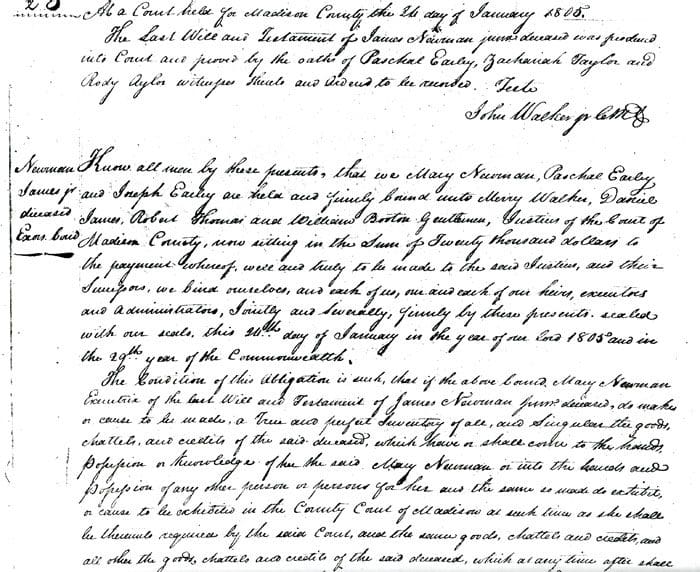 28
At a Court held for Madison County the 24 day of January 1805.
The Last Will and Testament of James Newman junr deceased was produced
into Court and proved by the oaths of Paschal Earley, Zachariah Taylor and
Rody Aylor witnesses thereto and ordered to be recorded. Teste
John Walker jr CMC
Newman
James jr
deceased
Exors. bond
Know all men by these presents, that we Mary Newman, Paschal Early
and Joseph Earley are held and firmly bound unto Merry Walker, Daniel
James, Robert Thomas and William Booton Gentlemen, Justices of the Court of
Madison County, now sitting in the Sum of Twenty thousand dollars to
the payment whereof, well and truly to be made to the said Justices, and their
Successors, we bind ourselves, and each of us, our and each of our heirs, executors
and administrators, Jointly and Severally, firmly by these presents. sealed
with our seals, this 24th day of January in the year of our Lord 1805 and in
the 29th year of the Commonwealth.
The Condition of this Obligation is such, that if the above bound Mary Newman
Executrix of the last Will and Testament of James Newman junr. deceased, do make
or cause to be made, a True and perfect Inventory of all, and Singular the goods,
chattels, and credits of the said deceased, which have or shall come to the hands,
possession or knowledge of her the said Mary Newman or into the hands and
possession of any other person or persons for her and the same so made do exhibit,
or cause to be exhibited in the County Court of Madison at such time as she shall
be thereunto required by the said Court, and the same goods, chattels and credits, and
all other the goods, chattels and credits of the said deceased, which at any time after shall